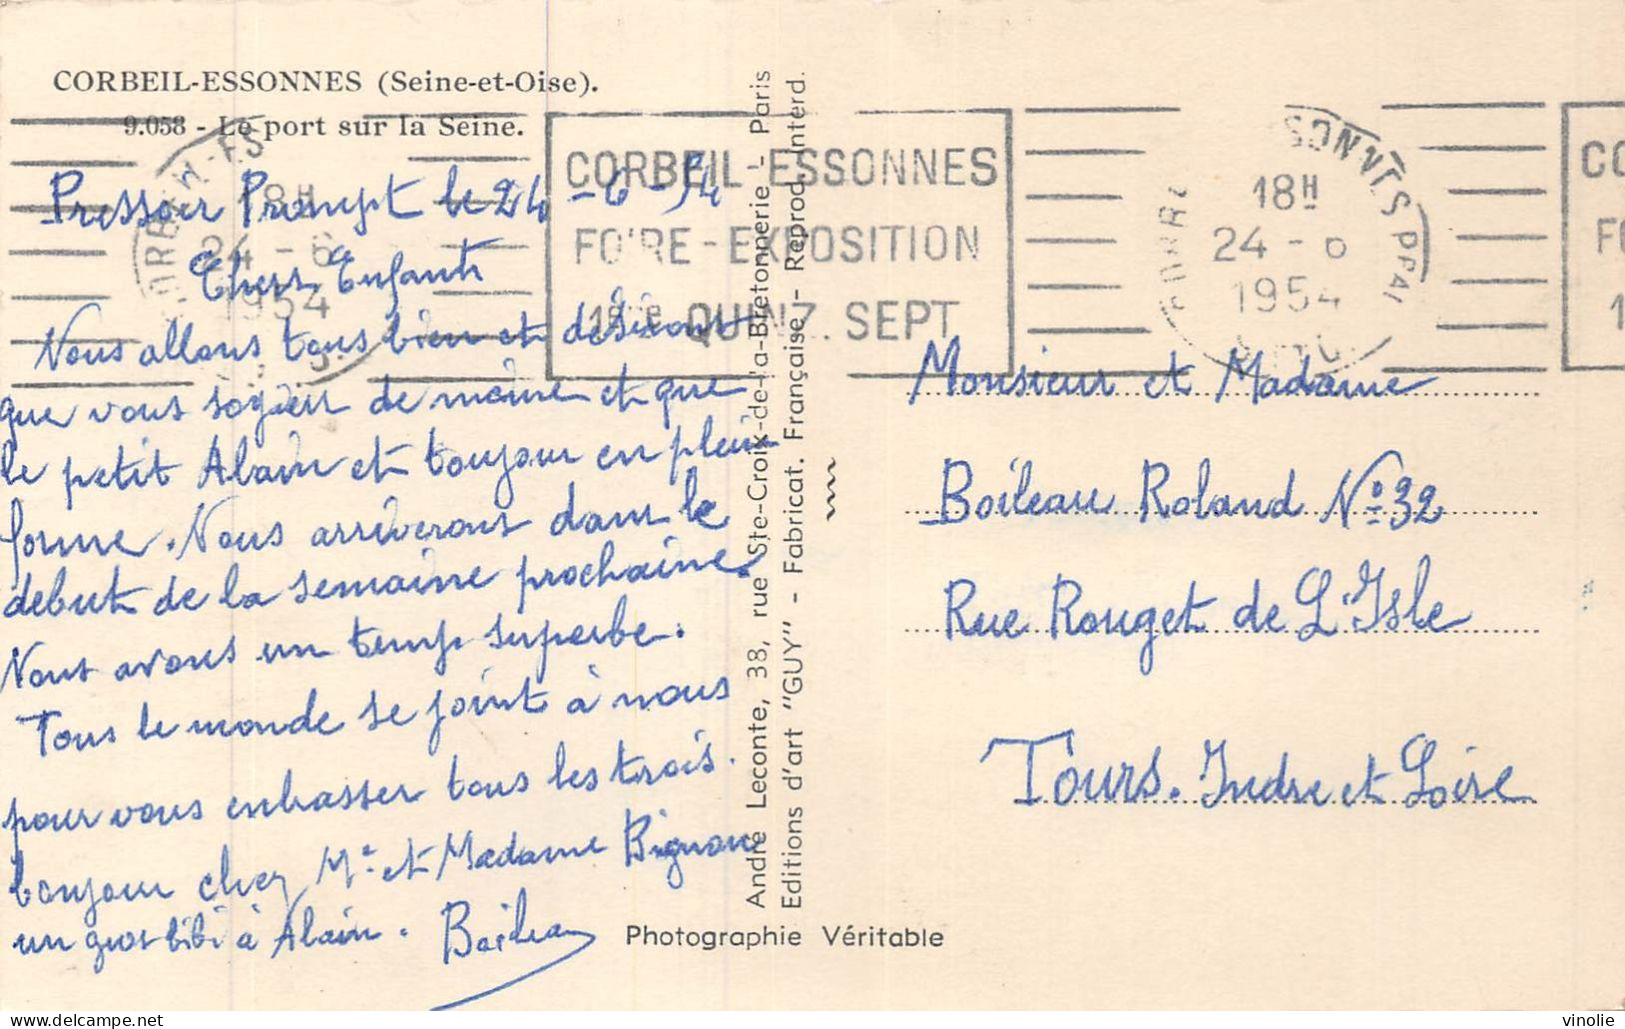 CORBEIL-ESSONNES (Seine-et-Oise).
9.058 - Le port sur la Seine.
Pressoir Prompt le 24-6-54
Chers Enfants
Nous allons tous bien et désirons
que vous soyiez de même et que
le petit Alain et toujour en plein
forme. Nous arriverons dans le
debut de la semaine prochaine.
Nous avons un temp superbe.
Tous le monde se joint à nous
pour vous enbrasser tous les trois.
bonjour chez Mr et Madame Bignon
un gros bibi à Alain. Boileau
CORBEIL-ES
18H
24-6
1954
CORBEIL-ESSONNES
FOIRE-EXPOSITION
1ère QUINZ. SEPT
André Leconte, 38, rue Ste-Croix-de-la-Bretonnerie - Paris
Editions d'art "GUY" - Fabricat. Française - Reprod. Interd.
Photographie Véritable
SONNES PPAL
18H
24-6
1954
CO
FO
1
Monsieur et Madame
Boileau Roland No 32
Rue Rouget de L'Isle
Tours. Indre et Loire
delcampe.net
vinolie